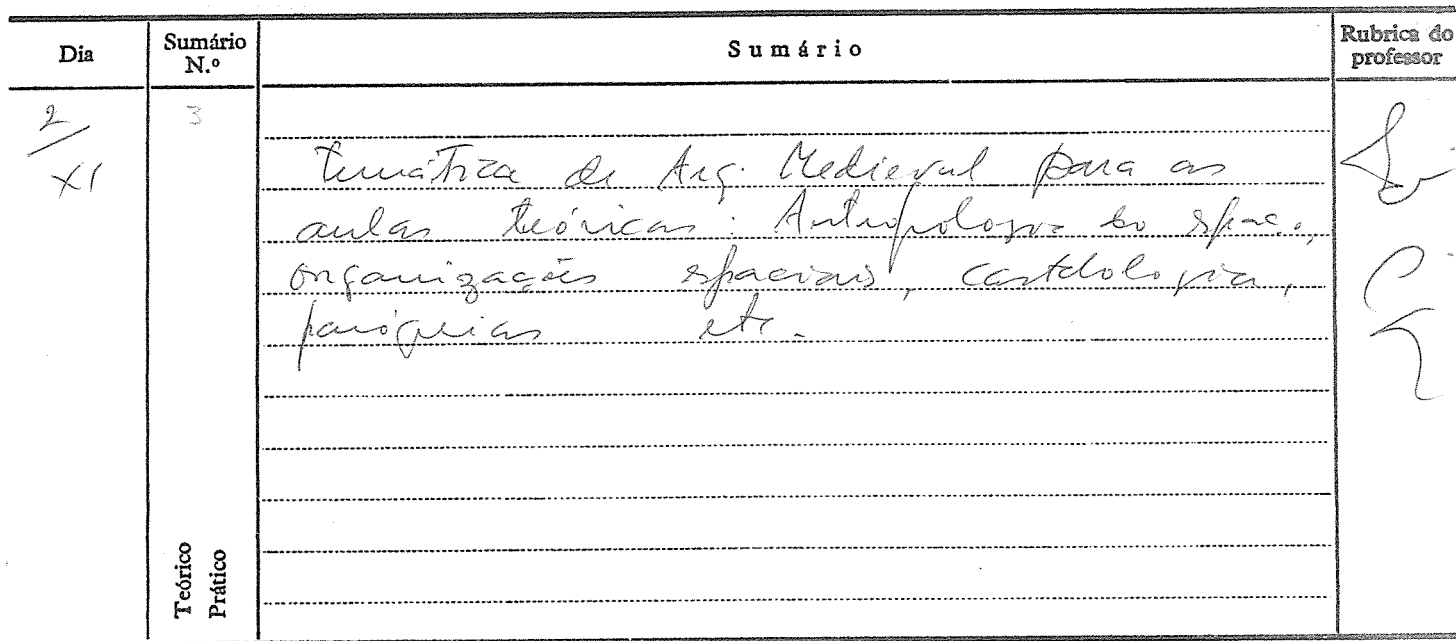 Dia
Sumário
N.º
Sumário
Rubrica do
professor
2/XI
3
Temática de Arq. Medieval para as
aulas teóricas: Antropologia do espaço,
organizações espaciais, castelologia,
paróquias etc.
Teórico
Prático